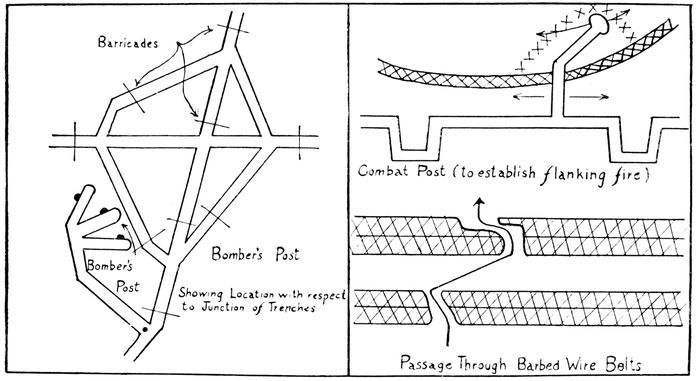 Barricades
Bomber's
Post
Bomber's Post
Showing Location with respect
to Junction of Trenches
Combat Post (to establish flanking fire)
Passage Through Barbed Wire Belts